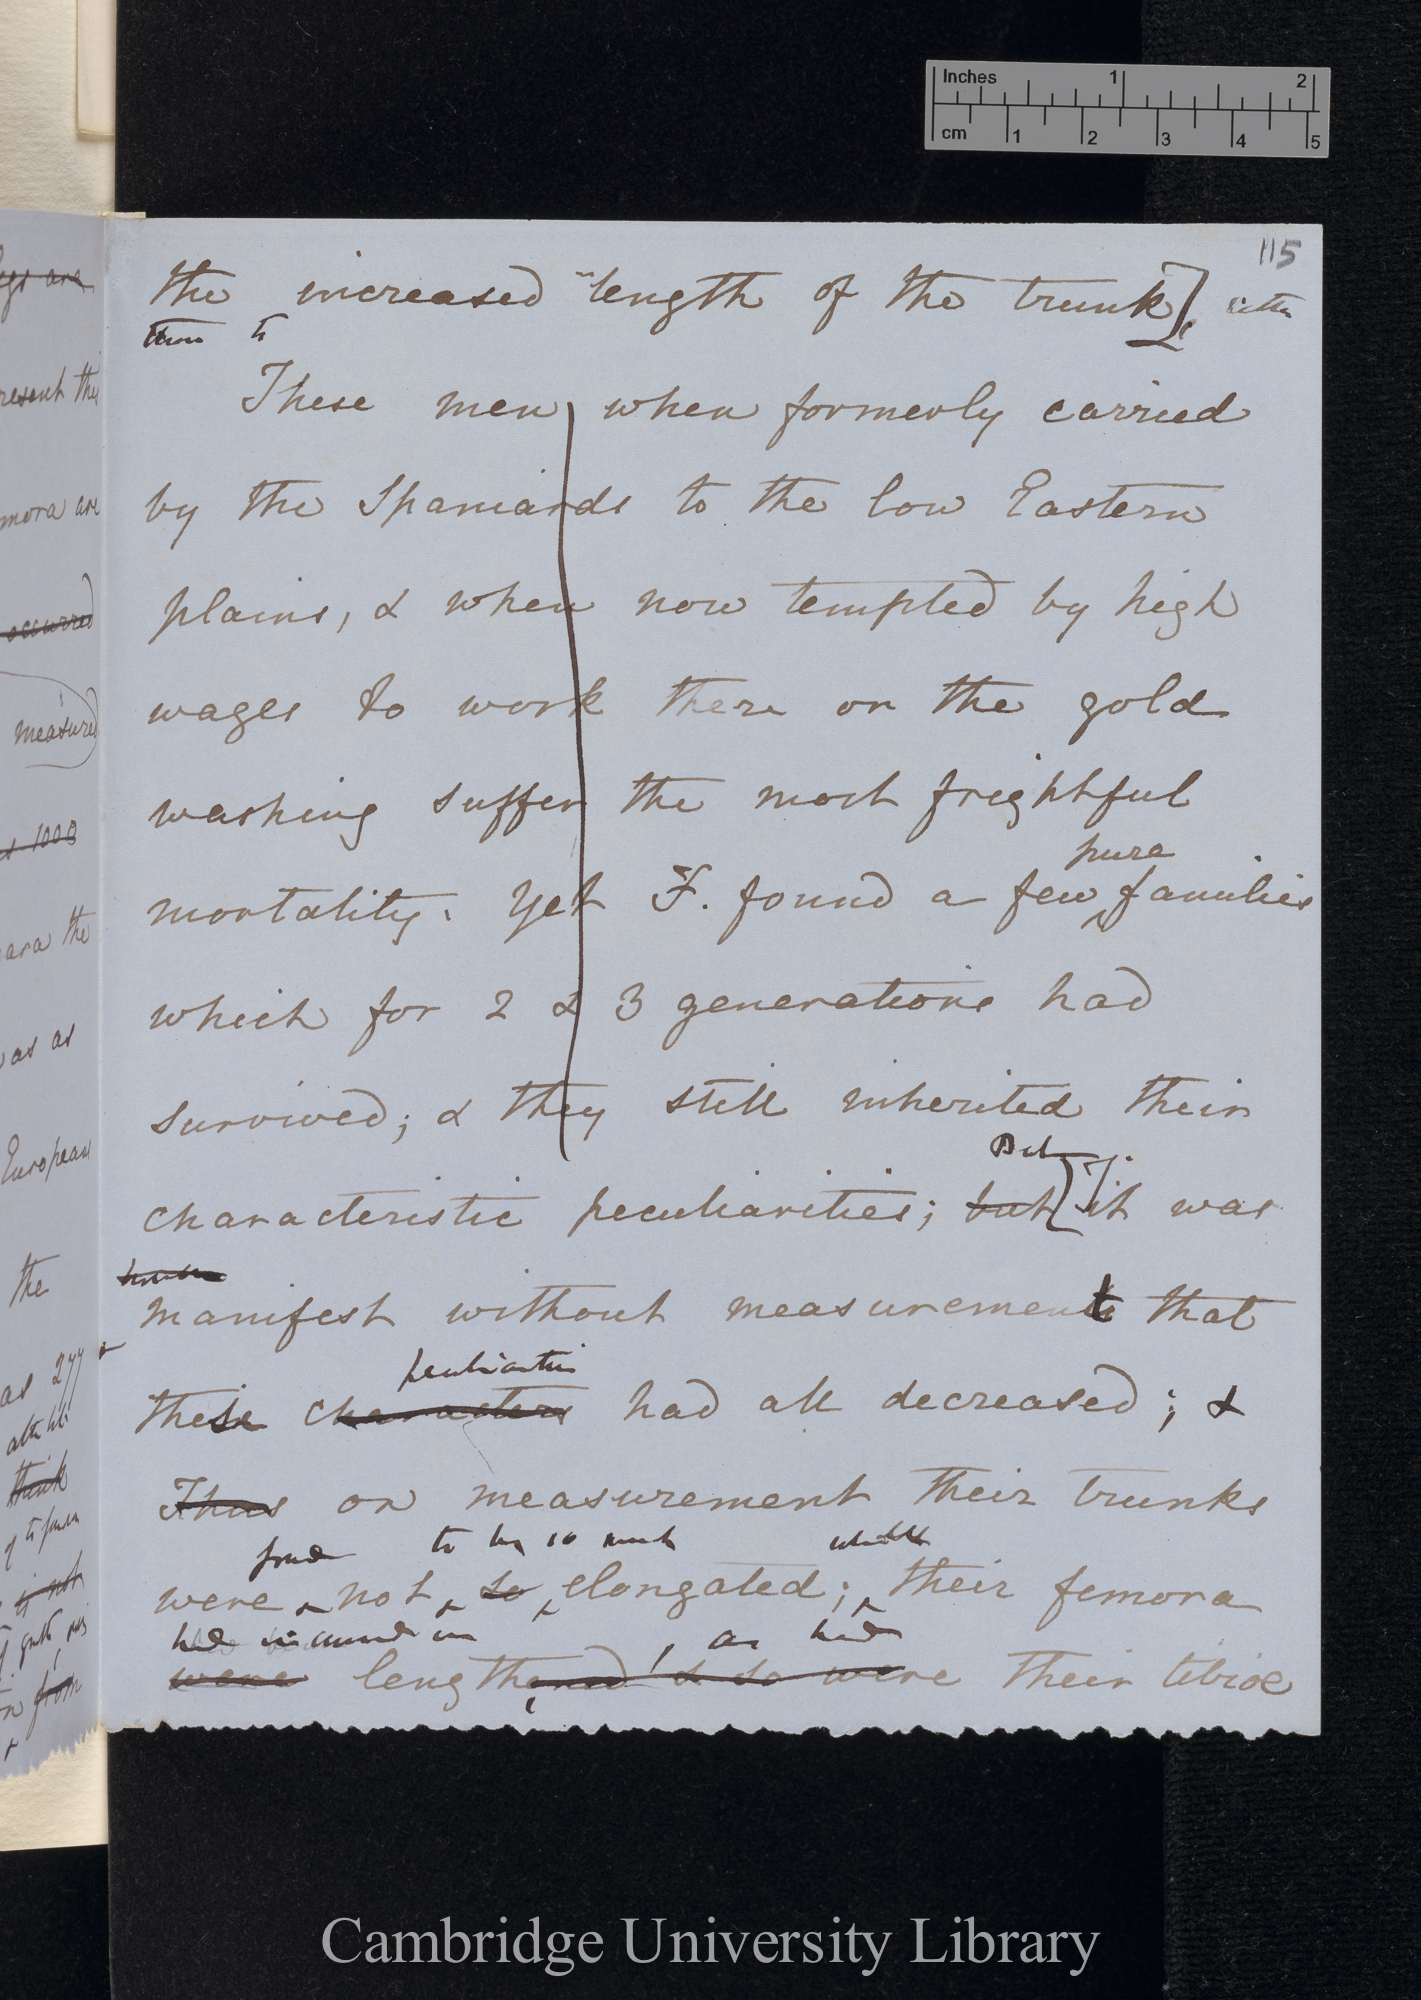 Inches 1 2
cm 1 2 3 4 5
115
the increased length of the trunk
to
These men when formerly carried
by the Spaniards to the low Eastern
plains, & when now tempted by high
wages to work there on the gold
washing suffer the most frightful
pure
mortality. Yet F. found a few families
which for 2 & 3 generations had
survived; & they still inherited their
But
characteristic peculiarities; but it was
manifest without measurement that
peculiarities
these characters had all decreased; &
Thus on measurement their trunks
found to be so much whilst
were not so elongated; their femora
had in as had
were lengthened & so were their tibiæ
resent the
mora are
occurred
measured
1000
ara the
as as
European
the
as 277
think
is not
from
Cambridge University Library